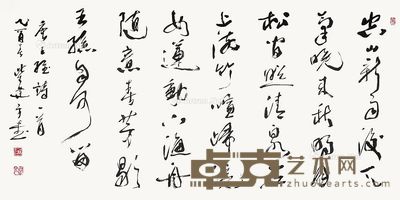 空山新雨後天
氣晚来秋明月
松間照清泉石
上流竹喧歸浣
女蓮動下漁舟
随意春芳歇
王孫自可留
唐王維詩一首
卓克艺术网
zhuokearts.com